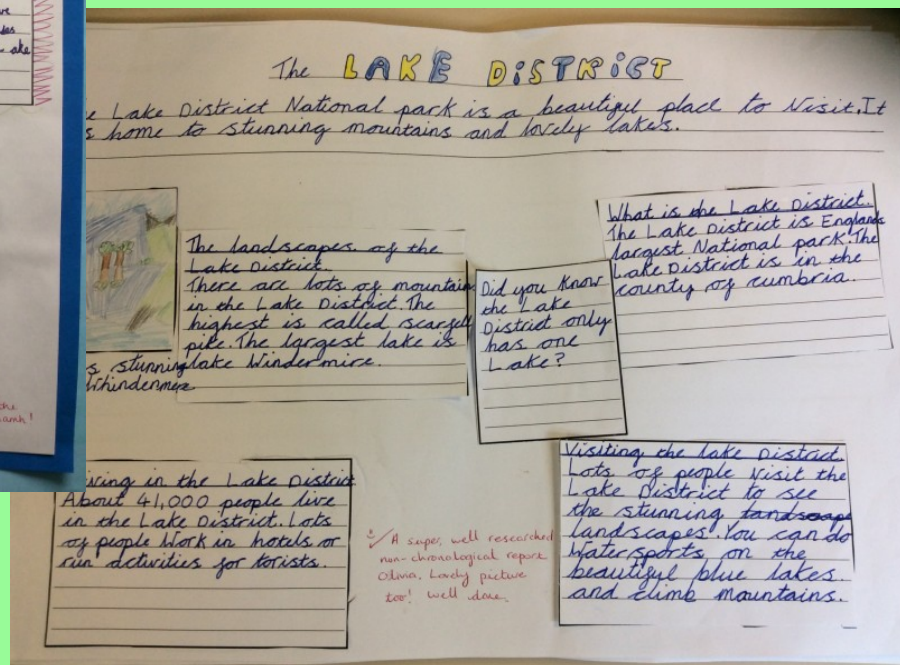 The LAKE DISTRICT
Lake District National park is a beautiful place to Visit.It
home to stunning mountains and lovely lakes.
The landscapes of the
Lake District.
There are lots of mountains
in the Lake District. The
highest is called scarfell
pike. The largest lake is
lake Windermire.
stunning
Whindenmere
Did you know
the Lake
District only
has one
Lake?
What is the Lake District.
The Lake District is Englands
largest National park. The
Lake District is in the
county of cumbria.
living in the Lake District
About 41,000 people live
in the Lake District. Lots
of people Work in hotels or
run activities for torists.
A super, well researched
non-chronological report
Olivia. Lovely picture
too! Well done.
Visiting the lake District.
Lots of people Visit the
Lake District to see
the stunning landscape
landscapes. You can do
Watersports on the
beautiful blue lakes
and climb mountains.
the